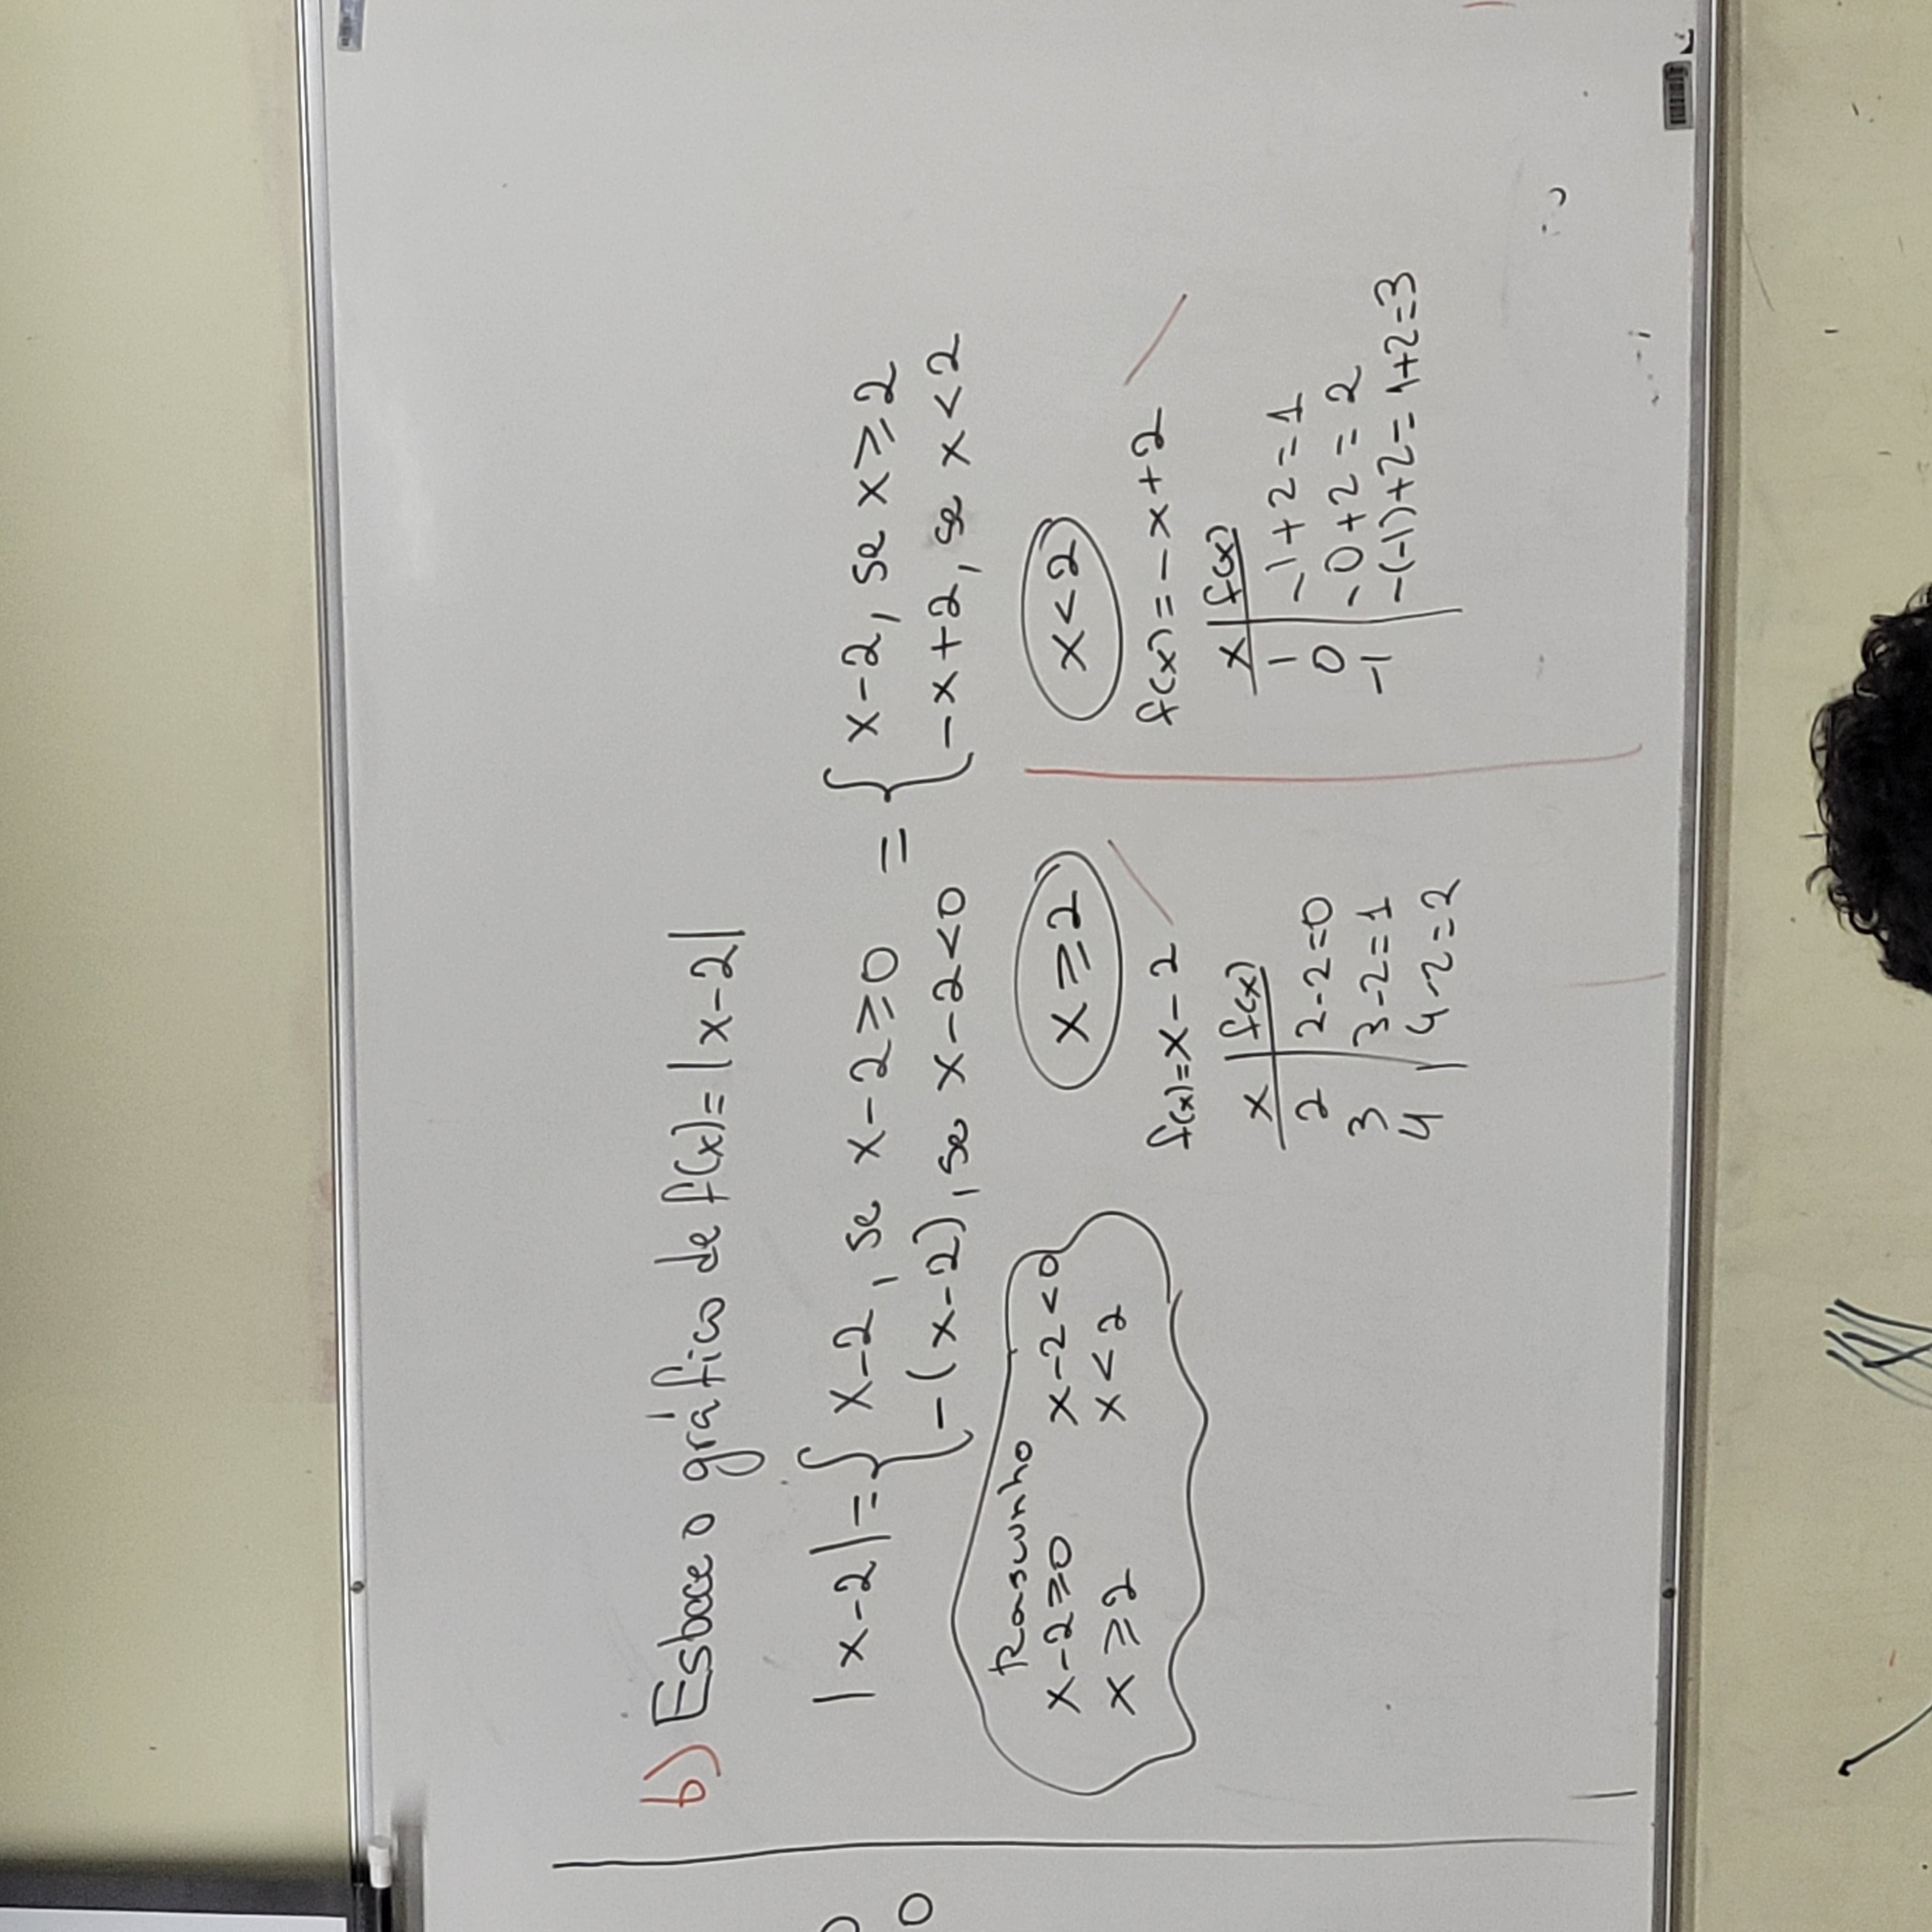 b) Esboce o gráfico de f(x)=|x-2|
|x-2|={ x-2, se x-2≥0 = { x-2, se x≥2
-(x-2), se x-2<0 -x+2, se x<2
Rascunho
x-2≥0 x-2<0
x≥2 x<2
x≥2
f(x)=x-2
x f(x)
2 2-2=0
3 3-2=1
4 4-2=2
x<2
f(x)=-x+2
x f(x)
1 -1+2=1
0 -0+2=2
-1 -(-1)+2=1+2=3
0